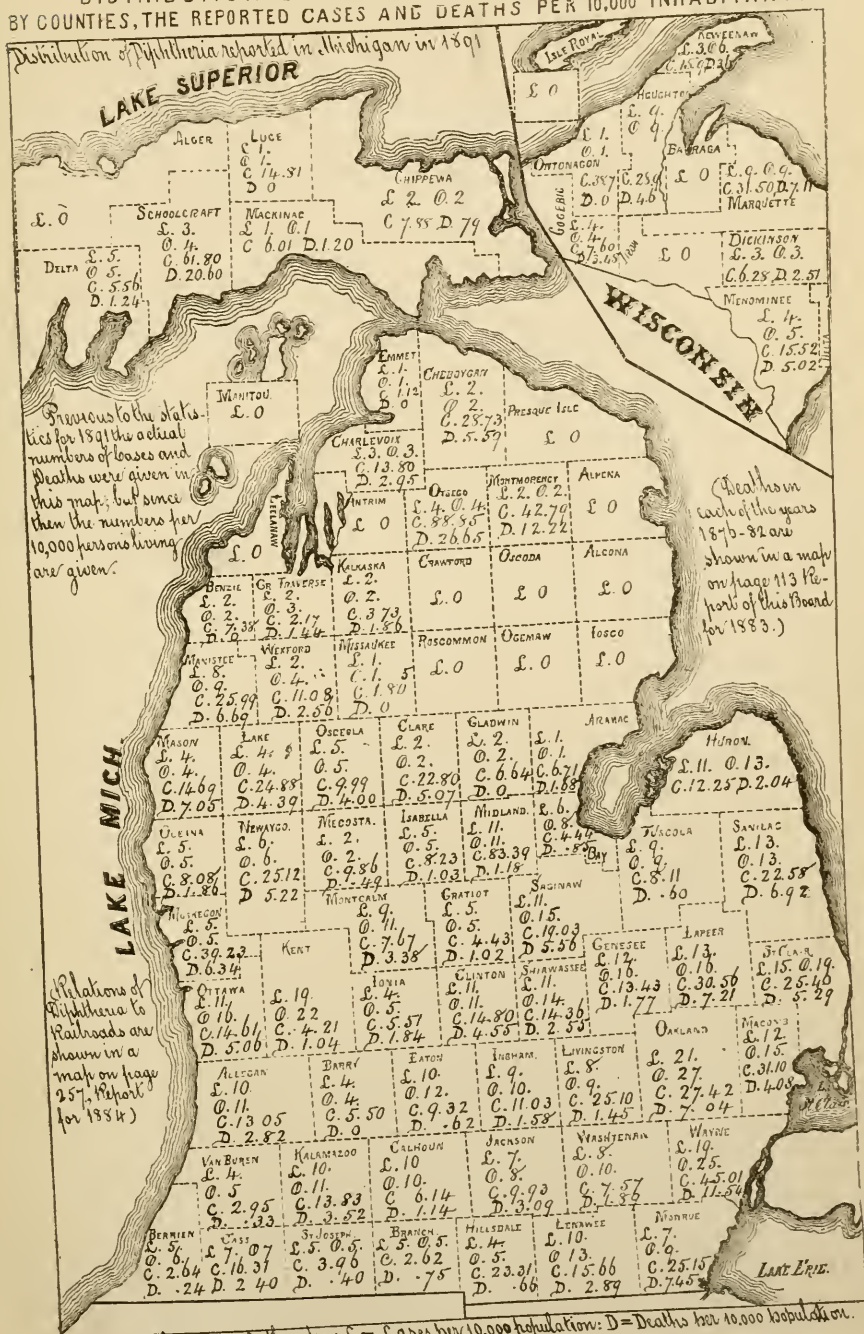 BY COUNTIES, THE REPORTED CASES AND DEATHS PER 10,000
Distribution of Diphtheria reported in Michigan in 1891
LAKE SUPERIOR
ISLE ROYAL
£ 0
KEWEENAW
£.3. O.6.
HOUGHTON
£. 9.
O 9.
£ 1.
O. 1.
ONTONAGON
C.38.7
D. 0
BARAGA
£ 0
£. 9. O. 9.
C. 31.50, D. 7.11
MARQUETTE
GOGEBIC
£. 4.
O. 4.
C. 7.60
D. 3.45
IRON
£ 0
DICKINSON
£. 3. O. 3.
C. 6.28 D. 2.51
MENOMINEE
£. 4.
O. 5.
C. 15.52
D. 5.02
WISCONSIN
ALGER
£. 0
LUCE
£ 1.
O 1.
C 14.81
D 0
CHIPPEWA
£ 2 O. 2
C 7.88 D. 79
SCHOOLCRAFT
£. 3.
O. 4.
C. 61.80
D. 20.60
MACKINAC
£ 1. O. 1
C 6.01 D. 1.20
DELTA
£. 5.
O 5.
C. 5.56
D. 1.24
Previous to the statis-
tics for 1891 the actual
numbers of Cases and
Deaths were given in
this map; but since
then the numbers per
10,000 persons living
are given.
MANITOU
£. 0
EMMET
£. 1.
O. 1.
C 1.12
D. 0
CHEBOYGAN
£. 2.
O 2.
C. 28.73
D. 5.59
PRESQUE ISLE
£ 0
CHARLEVOIX
£. 3. O. 3.
C. 13.80
D. 2.95
LEELANAW
£. 0
ANTRIM
£ 0
OTSEGO
£. 4. O. 4.
C. 88.85
D. 26.65
MONTMORENCY
£. 2. O. 2.
C. 42.79
D. 12.22
ALPENA
£ 0
(Deaths in
each of the years
1876-82 are
shown in a map
on page 113 Re-
port of this Board
for 1883.)
BENZIE
£. 2.
O. 2.
C. 7.38
D. 0
GR TRAVERSE
£. 2.
O. 3.
C. 2.17
D. 1.44
KALKASKA
£. 2.
O. 2.
C. 3 73
D. 1.86
CRAWFORD
£. 0
OSCODA
£ 0
ALCONA
£. 0
MANISTEE
£. 8.
O. 9.
C. 25.99
D. 6.69
WEXFORD
£. 2.
O. 4.
C. 11.08
D. 2.56
MISSAUKEE
£. 1.
O. 1. 5
C. 1.80
D. 0
ROSCOMMON
£. 0
OGEMAW
£. 0
IOSCO
£. 0
MASON
£. 4.
O. 4.
C. 14.69
D. 7.05
LAKE
£. 4.
O. 4.
C. 24.88
D. 4.39
OSCEOLA
£. 5.
O. 5.
C. 9.99
D. 4.00
CLARE
£. 2.
O. 2.
C. 22.80
D. 5.07
GLADWIN
£. 2.
O. 2.
C. 6.64
D. 0
ARANAC
£. 1.
O. 1.
C. 6.71
D. 1.68
HURON.
£. 11. O. 13.
C. 12.25 D. 2.04
LAKE MICH.
OCEINA
£. 5.
O. 5.
C. 8.08
D. 1.86
NEWAYGO.
£. 6.
O. 6.
C. 25.12
D 5.22
MECOSTA.
£. 2.
O. 2.
C. 9.86
D. .49
ISABELLA
£. 5.
O. 5.
C. 8.23
D. 1.03
MIDLAND.
£. 11.
O. 11.
C. 83.39
D. 1.18
£. 6.
O. 8.
C. 4.44
BAY
TUSCOLA
£. 9.
O. 9.
C. 8.11
D. .60
SANILAC
£. 13.
O. 13.
C. 22.58
D. 6.92
MUSKEGON
£. 5.
O. 5.
C. 39.23
D. 6.34
MONTCALM
£. 9.
O. 11.
C. 7.67
D. 3.38
GRATIOT
£. 5.
O. 5.
C. 4.43
D. 1.02
SAGINAW
£. 11.
O. 15.
C. 19.03
D. 5.56
GENESEE
£. 12.
O. 16.
C. 13.43
D. 1.77
LAPEER
£. 13.
O. 16.
C. 30.56
D. 7.21
ST CLAIR
£. 15. O. 19.
C. 25.46
D. 5.29
(Relations of
Diphtheria to
Railroads are
shown in a
map on page
257, Report
for 1884)
OTTAWA
£. 11.
O. 16.
C. 14.61
D. 5.06
KENT
£. 19.
O. 22
C. 4.21
D. 1.04
IONIA
£. 4.
O. 5.
C. 5.57
D. 1.84
CLINTON
£. 11.
O. 11.
C. 14.80
D. 4.55
SHIAWASSEE
£. 11.
O. 14.
C. 14.36
D. 2.55
ALLEGAN
£. 10.
O. 11.
C. 13 05
D. 2.82
BARRY
£. 4.
O. 4.
C. 5.50
D. 0
EATON
£. 10.
O. 12.
C. 9.32
D. .62
INGHAM.
£. 9.
O. 10.
C. 11.03
D. 1.58
LIVINGSTON
£. 8.
O. 9.
C. 25.10
D. 1.45
OAKLAND
£. 21.
O. 27.
C. 27.42
D. 7. 04
MACOMB
£. 12
O. 15.
C. 31.10
D. 4.08
L.
St Clair
VAN BUREN
£. 4.
O. 5
C. 2.95
D. .33
KALAMAZOO
£. 10.
O. 11.
C. 13.83
D. 3.52
CALHOUN
£. 10
O. 10.
C 6.14
D. 1.14
JACKSON
£. 7.
O. 8.
C. 9.93
D. 3.09
WASHTENAW
£. 8.
O. 10.
C. 7.57
D. 1.89
WAYNE
£. 19.
O. 25.
C. 45.01
D. 11.54
BERRIEN
£. 5.
O. 6.
C. 2.64
D. .24
CASS
£. 7. O 7
C. 16.31
D. 2 40
ST JOSEPH
£. 5 O. 5.
C. 3.96
D. .40
BRANCH
£ 5 O. 5.
C. 2.62
D. .75
HILLSDALE
£. 4.
O. 5.
C. 23.31
D. .66
LENAWEE
£. 10.
O 13.
C. 15.66
D. 2.89
MONROE
£. 7.
O. 9.
C. 25.15
D. 7.45
LAKE ERIE.
Cases per 10,000 population: D = Deaths per 10,000 population.